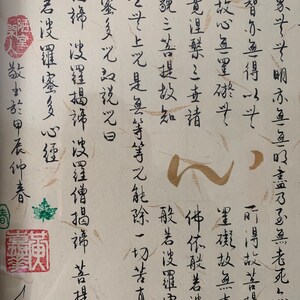 无无明亦無無明盡乃至無老死
智亦無得以无所得故菩提
故心無罣礙无罣礙故無
竟涅槃三世諸佛依般若
藐三菩提故知般若波羅蜜
是无上咒是無等等咒能除一切苦真
蜜多咒即說咒曰
揭諦 波羅揭諦 波羅僧揭諦 菩提
若波羅蜜多心經
敬書於甲辰仲春
春